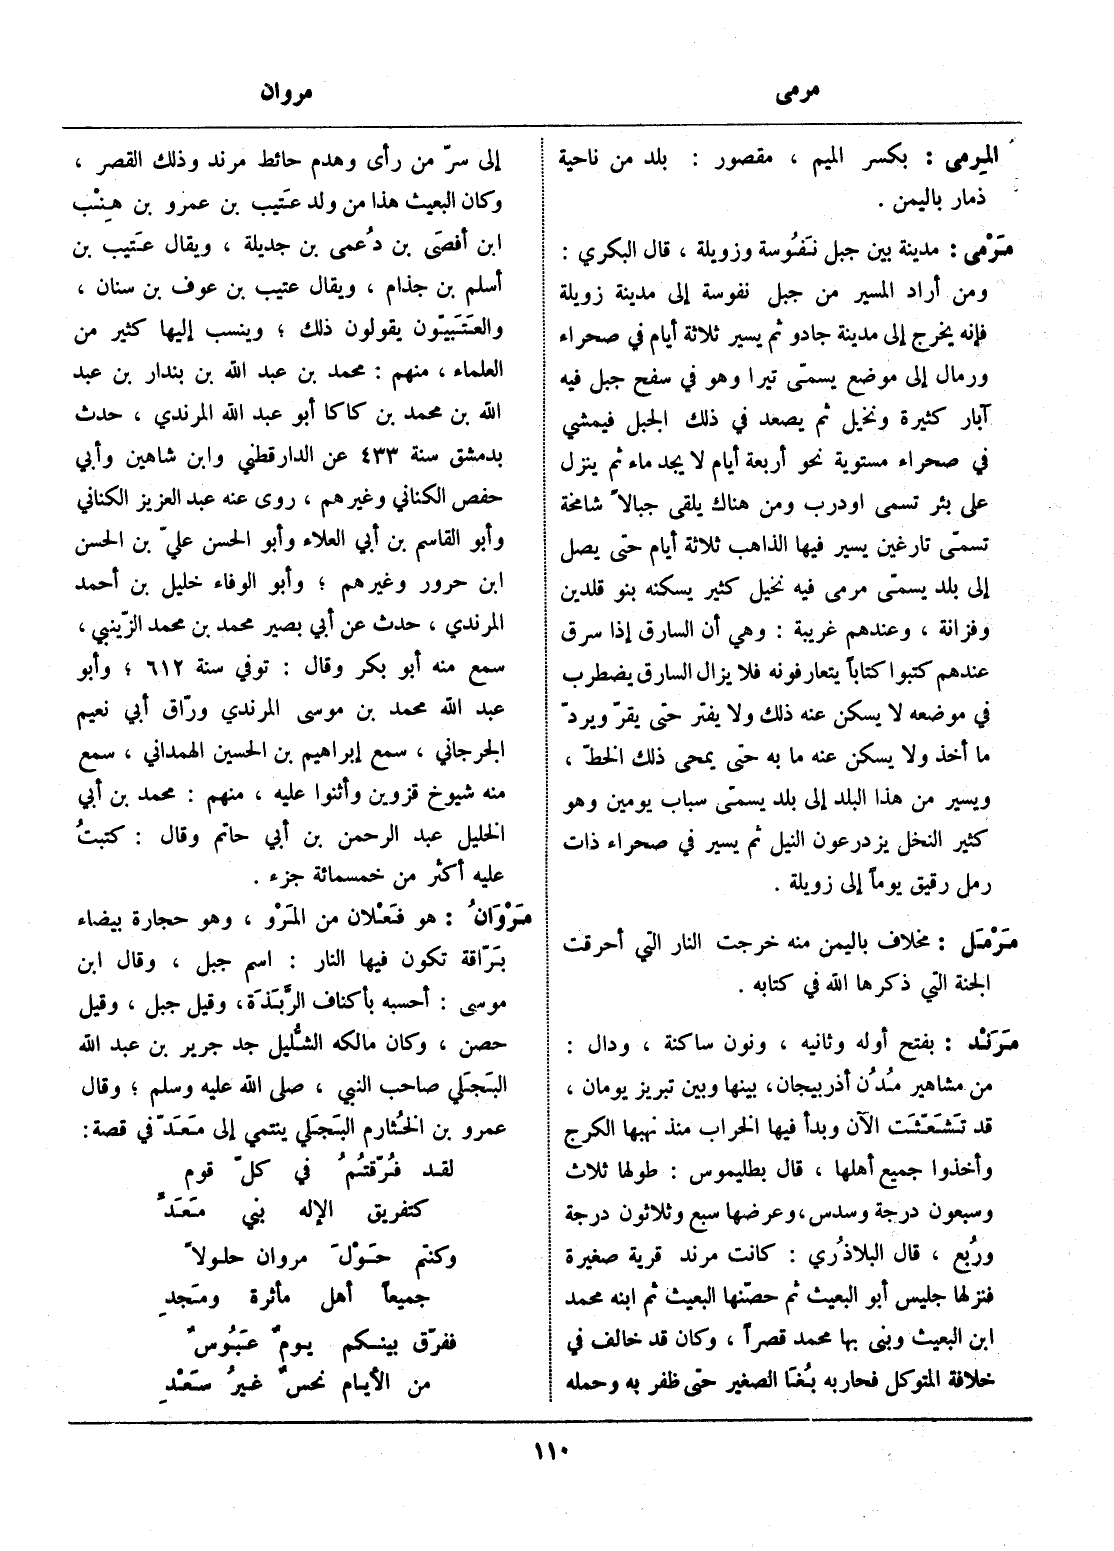 مرمى
مروان
المِرمى : بكسر الميم ، مقصور : بلد من ناحية
ذمار باليمن .
مَرْمى : مدينة بين جبل نَفُوسة وزويلة ، قال البكري :
ومن أراد المسير من جبل نفوسة إلى مدينة زويلة
فإنه يخرج إلى مدينة جادو ثم يسير ثلاثة أيام في صحراء
ورمال إلى موضع يسمّى تيرا وهو في سفح جبل فيه
آبار كثيرة ونخيل ثم يصعد في ذلك الجبل فيمشي
في صحراء مستوية نحو أربعة أيام لا يجد ماء ثم ينزل
على بئر تسمى اودرب ومن هناك يلقى جبالاً شامخة
تسمّى تارغين يسير فيها الذاهب ثلاثة أيام حتى يصل
إلى بلد يسمّى مرمى فيه نخيل كثير يسكنه بنو قلدين
وفزانة ، وعندهم غريبة : وهي أن السارق إذا سرق
عندهم كتبوا كتاباً يتعارفونه فلا يزال السارق يضطرب
في موضعه لا يسكن عنه ذلك ولا يفتر حتى يقرّ ويردّ
ما أخذ ولا يسكن عنه ما به حتى يمحى ذلك الخطّ ،
ويسير من هذا البلد إلى بلد يسمّى سباب يومين وهو
كثير النخل يزدرعون النيل ثم يسير في صحراء ذات
رمل رقيق يوماً إلى زويلة .
مَرْمَل : مخلاف باليمن منه خرجت النار التي أحرقت
الجنة التي ذكرها الله في كتابه .
مَرَنْد : بفتح أوله وثانيه ، ونون ساكنة ، ودال :
من مشاهير مُدُن أذربيجان، بينها وبين تبريز يومان ،
قد تَشَعّثَت الآن وبدأ فيها الخراب منذ نهبها الكرج
وأخذوا جميع أهلها ، قال بطليموس : طولها ثلاث
وسبعون درجة وسدس، وعرضها سبع وثلاثون درجة
ورُبع ، قال البلاذُري : كانت مرند قرية صغيرة
فنزلها جليس أبو البعيث ثم حصّنها البعيث ثم ابنه محمد
ابن البعيث وبنى بها محمد قصراً ، وكان قد خالف في
خلافة المتوكل فحاربه بُغَا الصغير حتى ظفر به وحمله
إلى سرّ من رأى وهدم حائط مرند وذلك القصر ،
وكان البعيث هذا من ولد عَتيب بن عمرو بن هِنْب
ابن أَفصَى بن دُعمي بن جديلة ، ويقال عَتيب بن
أسلم بن جذام ، ويقال عتيب بن عوف بن سنان ،
والعَتَبيّون يقولون ذلك ؛ وينسب إليها كثير من
العلماء ، منهم : محمد بن عبد الله بن بندار بن عبد
الله بن محمد بن كاكا أبو عبد الله المرندي ، حدث
بدمشق سنة ٤٣٣ عن الدارقطني وابن شاهين وأبي
حفص الكناني وغيرهم ، روى عنه عبد العزيز الكناني
وأبو القاسم بن أبي العلاء وأبو الحسن عليّ بن الحسن
ابن حرور وغيرهم ؛ وأبو الوفاء خليل بن أحمد
المرندي ، حدث عن أبي بصير محمد بن محمد الزّينبي ،
سمع منه أبو بكر وقال : توفي سنة ٦١٢ ؛ وأبو
عبد الله محمد بن موسى المرندي ورّاق أبي نعيم
الجرجاني ، سمع إبراهيم بن الحسين الهمداني ، سمع
منه شيوخ قزوين وأثنوا عليه ، منهم : محمد بن أبي
الخليل عبد الرحمن بن أبي حاتم وقال : كتبتُ
عليه أكثر من خمسمائة جزء .
مَرْوَانُ : هو فَعْلان من المَرْو ، وهو حجارة بيضاء
بَرّاقة تكون فيها النار : اسم جبل ، وقال ابن
موسى : أحسبه بأكناف الرَّبَذَة، وقيل جبل ، وقيل
حصن ، وكان مالكه الشُّليل جد جرير بن عبد الله
البَجَلي صاحب النبي ، صلى الله عليه وسلم ؛ وقال
عمرو بن الخُثارم البَجَلي ينتمي إلى مَعَدّ في قصة:
لقد فُرّقتُمُ في كلّ قوم
كتفريق الإله بني مَعَدِّ
وكنتم حَوْلَ مروان حلولاً
جميعاً أهل مأثرة ومَجدِ
ففرّق بينكم يومٌ عَبُوسٌ
من الأيام نحسٌ غيرُ سَعْدِ
١١٠